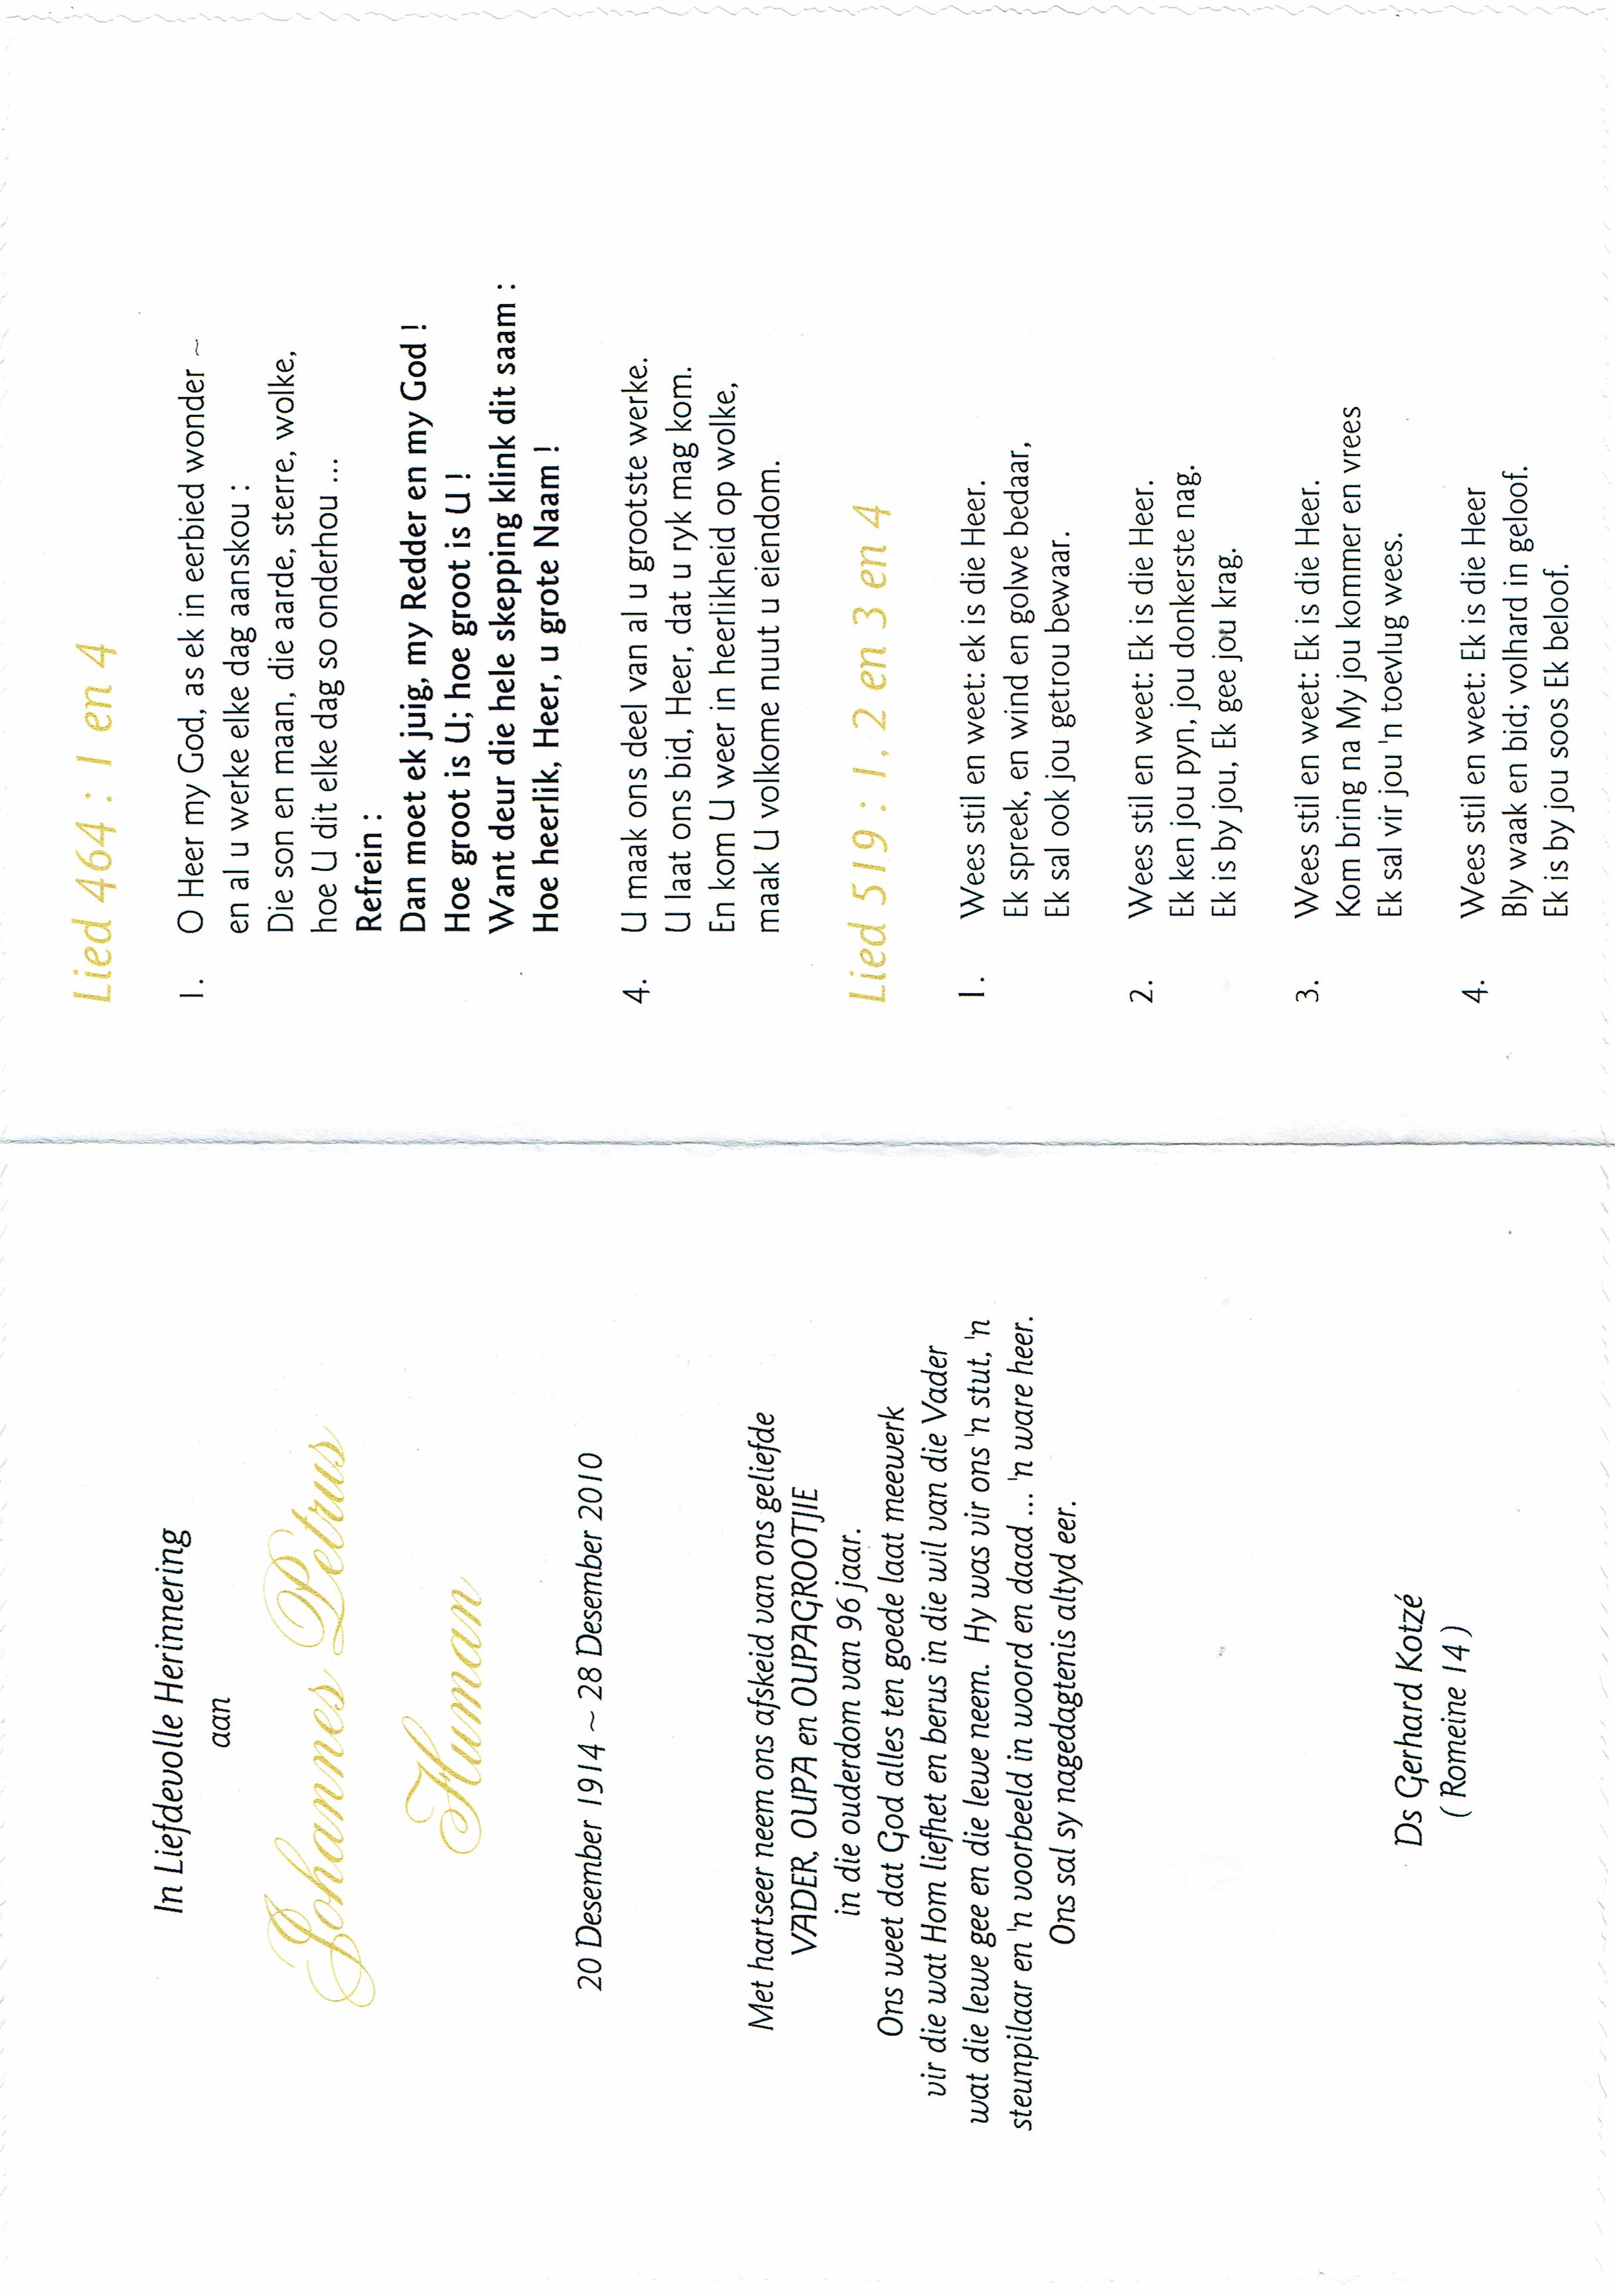 In Liefdevolle Herinnering
aan
Johannes Petrus
Human
20 Desember 1914 ~ 28 Desember 2010
Met hartseer neem ons afskeid van ons geliefde
VADER, OUPA en OUPAGROOTJIE
in die ouderdom van 96 jaar.
Ons weet dat God alles ten goede laat meewerk
vir die wat Hom liefhet en berus in die wil van die Vader
wat die lewe gee en die lewe neem. Hy was vir ons 'n stut, 'n
steunpilaar en 'n voorbeeld in woord en daad ... 'n ware heer.
Ons sal sy nagedagtenis altyd eer.
Ds Gerhard Kotzé
( Romeine 14 )
Lied 464 : 1 en 4
1. O Heer my God, as ek in eerbied wonder ~
en al u werke elke dag aanskou :
Die son en maan, die aarde, sterre, wolke,
hoe U dit elke dag so onderhou ...
Refrein :
Dan moet ek juig, my Redder en my God !
Hoe groot is U; hoe groot is U !
Want deur die hele skepping klink dit saam :
Hoe heerlik, Heer, u grote Naam !
4. U maak ons deel van al u grootste werke.
U laat ons bid, Heer, dat u ryk mag kom.
En kom U weer in heerlikheid op wolke,
maak U volkome nuut u eiendom.
Lied 519 : 1, 2 en 3 en 4
1. Wees stil en weet: ek is die Heer.
Ek spreek, en wind en golwe bedaar,
Ek sal ook jou getrou bewaar.
2. Wees stil en weet: Ek is die Heer.
Ek ken jou pyn, jou donkerste nag.
Ek is by jou, Ek gee jou krag.
3. Wees stil en weet: Ek is die Heer.
Kom bring na My jou kommer en vrees
Ek sal vir jou 'n toevlug wees.
4. Wees stil en weet: Ek is die Heer
Bly waak en bid; volhard in geloof.
Ek is by jou soos Ek beloof.